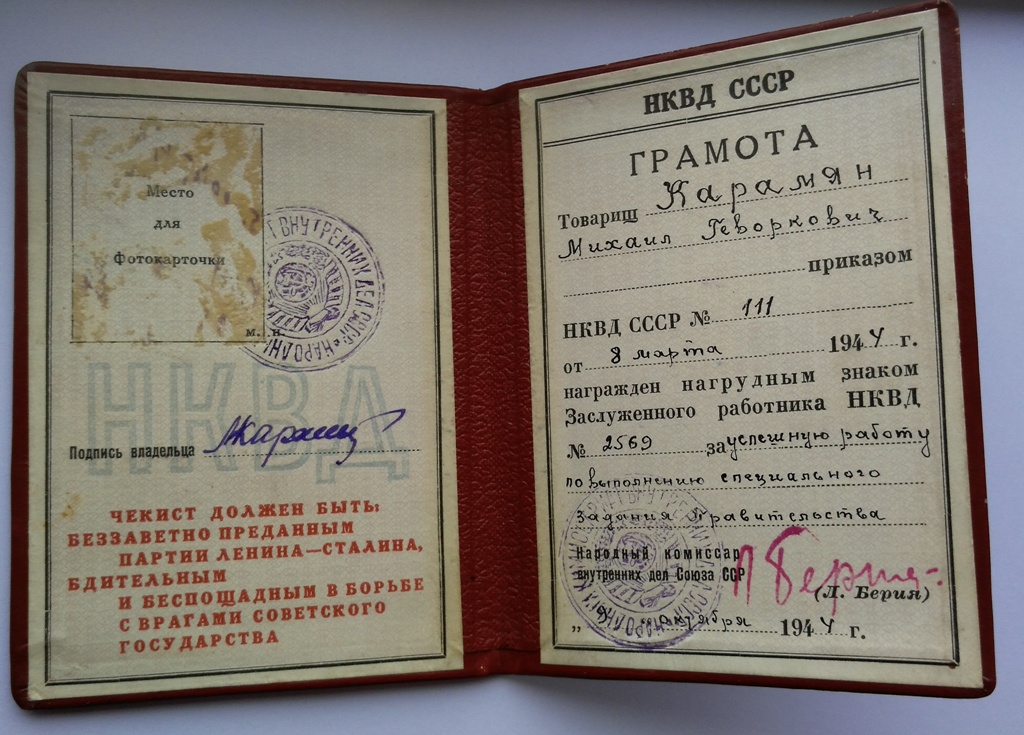 Место
для
Фотокарточки
м. п.
НКВД
Подпись владельца
ЧЕКИСТ ДОЛЖЕН БЫТЬ:
БЕЗЗАВЕТНО ПРЕДАННЫМ
ПАРТИИ ЛЕНИНА—СТАЛИНА,
БДИТЕЛЬНЫМ
И БЕСПОЩАДНЫМ В БОРЬБЕ
С ВРАГАМИ СОВЕТСКОГО
ГОСУДАРСТВА
НКВД СССР
ГРАМОТА
Товарищ Карамян
Михаил Геворкович
приказом
НКВД СССР № 111
от 8 марта 1944 г.
награжден нагрудным знаком
Заслуженного работника НКВД
№ 2569 за успешную работу
по выполнению специального
Задания Правительства
Народный комиссар
внутренних дел Союза ССР
Л Берия
(Л. Берия)
„ “ октября 1944 г.